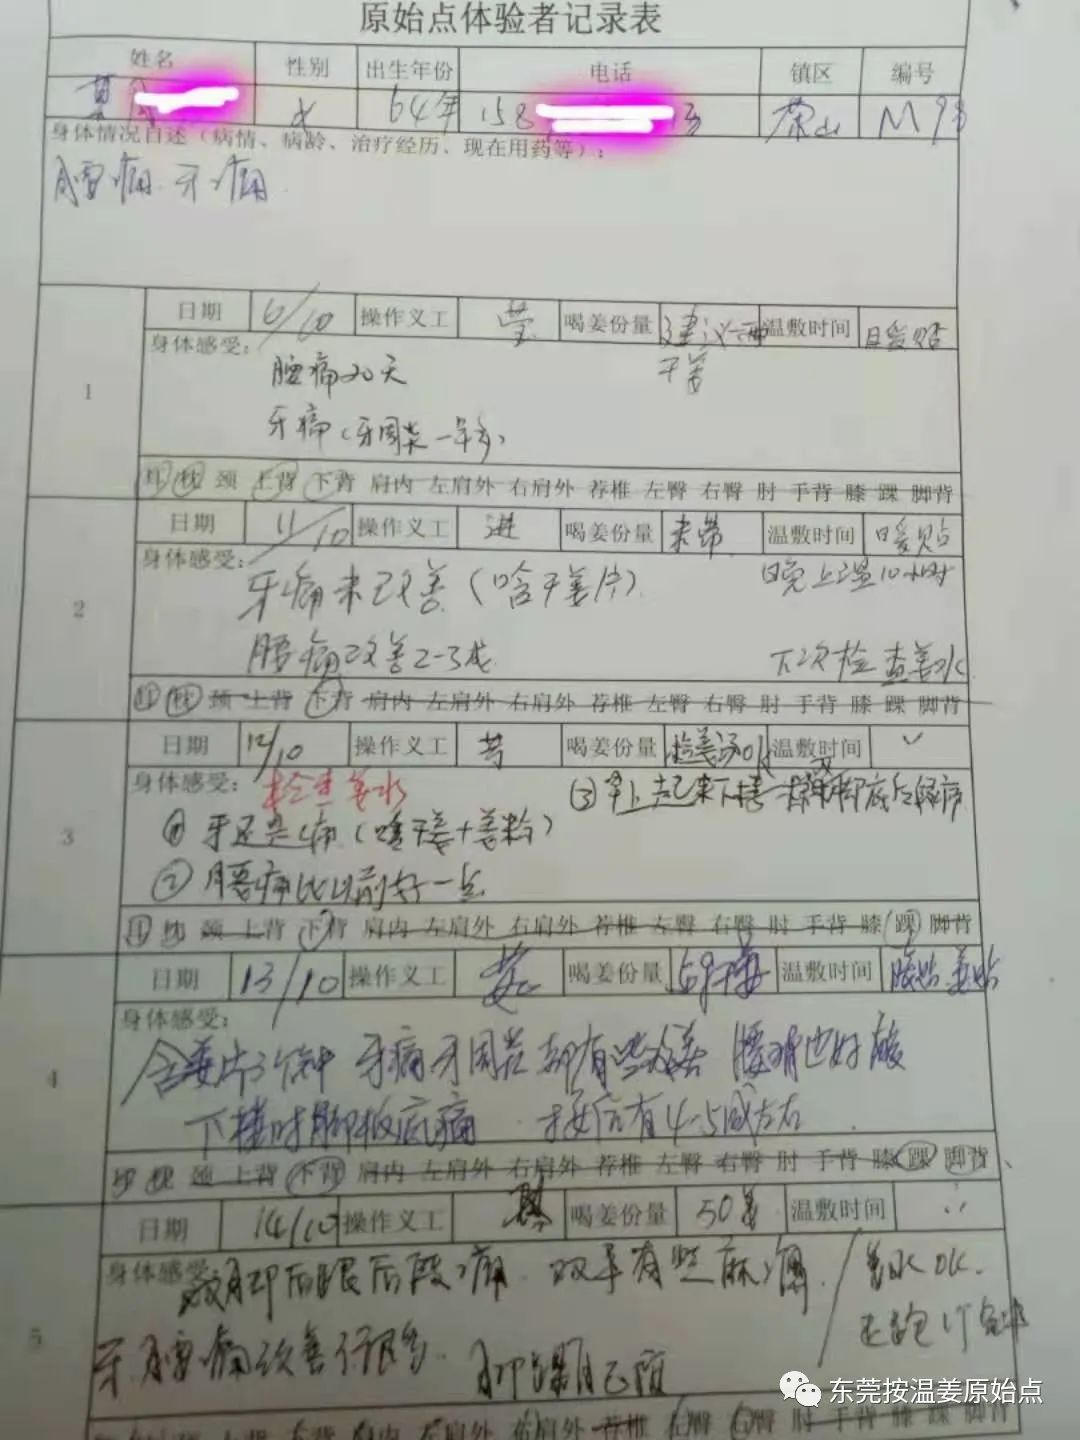 原始点体验者记录表
姓名 性别 出生年份 电话 镇区 编号
女 64年 158 3 茶山 M93
身体情况自述（病情、病龄、治疗经历、现在用药等）：
腰痛. 牙痛.
1
日期 6/10 操作义工 莹 喝姜份量 建议两 温敷时间 日暖贴
干姜
身体感受：
腰痛20天
牙痛（牙周炎一年多）
耳 枕 颈 上背 下背 肩内 左肩外 右肩外 荐椎 左臀 右臀 肘 手背 膝 踝 脚背
2
日期 11/10 操作义工 进 喝姜份量 未带 温敷时间 暖贴
身体感受：
晚上温10小时
牙痛未改善（含干姜片）
腰痛改善2-3成
下次检查姜水
耳 枕 颈 上背 下背 肩内 左肩外 右肩外 荐椎 左臀 右臀 肘 手背 膝 踝 脚背
3
日期 12/10 操作义工 喝姜份量 温敷时间 ✓
身体感受： 检查姜水
③早上起来下楼 脚底后跟痛
① 牙还是痛（含干姜+姜粉）
② 腰痛比以前好一点
耳 枕 颈 上背 下背 肩内 左肩外 右肩外 荐椎 左臀 右臀 肘 手背 膝 踝 脚背
4
日期 13/10 操作义工 喝姜份量 温敷时间 暖贴.姜贴
身体感受：
含姜片3个钟 牙痛牙周炎都有些改善 腰痛也好
下楼时脚板底痛. 按后有4-5成左右.
耳 枕 颈 上背 下背 肩内 左肩外 右肩外 荐椎 左臀 右臀 肘 手背 膝 踝 脚背
5
日期 14/10 操作义工 喝姜份量 50姜 温敷时间
身体感受：
脚后跟后段痛. 双手有些麻痛. 姜水OK.
牙.腰痛改善很多.
臀 臀 肘 手背 膝 踝 脚背
东莞按温姜原始点